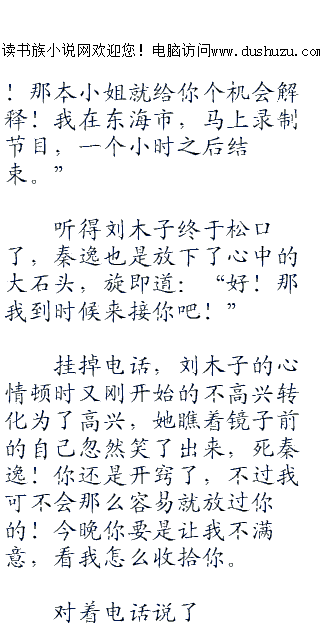 读书族小说网欢迎您！电脑访问www.dushuzu.com
！那本小姐就给你个机会解
释！我在东海市，马上录制
节目，一个小时之后结
束。”
听得刘木子终于松口
了，秦逸也是放下了心中的
大石头，旋即道：“好！那
我到时候来接你吧！”
挂掉电话，刘木子的心
情顿时又刚开始的不高兴转
化为了高兴，她瞧着镜子前
的自己忽然笑了出来，死秦
逸！你还是开窍了，不过我
可不会那么容易就放过你
的！今晚你要是让我不满
意，看我怎么收拾你。
对着电话说了